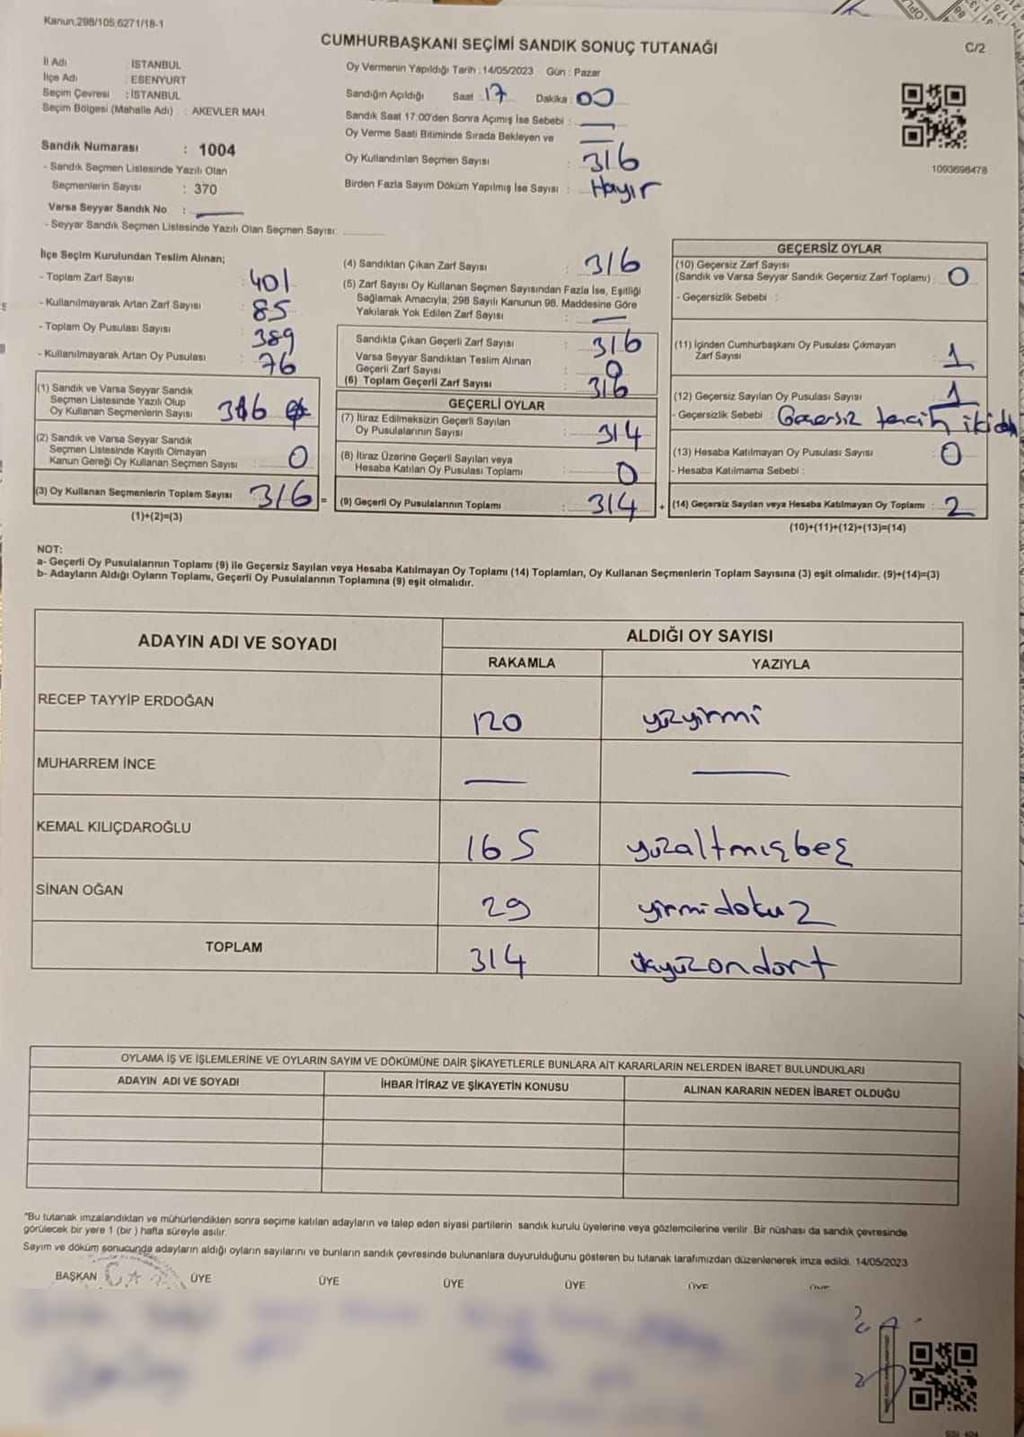 Kanun,298/105,6271/18-1
CUMHURBAŞKANI SEÇİMİ SANDIK SONUÇ TUTANAĞI
C/2
İl Adı : İSTANBUL
İlçe Adı : ESENYURT
Seçim Çevresi : İSTANBUL
Seçim Bölgesi (Mahalle Adı) : AKEVLER MAH
Sandık Numarası : 1004
- Sandık Seçmen Listesinde Yazılı Olan
Seçmenlerin Sayısı : 370
Varsa Seyyar Sandık No :
- Seyyar Sandık Seçmen Listesinde Yazılı Olan Seçmen Sayısı:
Oy Vermenin Yapıldığı Tarih : 14/05/2023 Gün : Pazar
Sandığın Açıldığı Saat : 17 Dakika : 00
Sandık Saat 17:00'den Sonra Açımış İse Sebebi :
Oy Verme Saati Bitiminde Sırada Bekleyen ve
Oy Kullandırılan Seçmen Sayısı : 316
Birden Fazla Sayım Döküm Yapılmış İse Sayısı : Hayır
1093698478
İlçe Seçim Kurulundan Teslim Alınan;
- Toplam Zarf Sayısı : 401
- Kullanılmayarak Artan Zarf Sayısı : 85
- Toplam Oy Pusulası Sayısı : 389
- Kullanılmayarak Artan Oy Pusulası : 76
(1) Sandık ve Varsa Seyyar Sandık
Seçmen Listesinde Yazılı Olup
Oy Kullanan Seçmenlerin Sayısı 316
(2) Sandık ve Varsa Seyyar Sandık
Seçmen Listesinde Kayıtlı Olmayan
Kanun Gereği Oy Kullanan Seçmen Sayısı 0
(3) Oy Kullanan Seçmenlerin Toplam Sayısı 316 =
(1)+(2)=(3)
(4) Sandıktan Çıkan Zarf Sayısı : 316
(5) Zarf Sayısı Oy Kullanan Seçmen Sayısından Fazla İse, Eşitliği
Sağlamak Amacıyla, 298 Sayılı Kanunun 98. Maddesine Göre
Yakılarak Yok Edilen Zarf Sayısı :
Sandıkta Çıkan Geçerli Zarf Sayısı : 316
Varsa Seyyar Sandıktan Teslim Alınan
Geçerli Zarf Sayısı : 0
(6) Toplam Geçerli Zarf Sayısı : 316
GEÇERLİ OYLAR
(7) İtiraz Edilmeksizin Geçerli Sayılan
Oy Pusulalarının Sayısı : 314
(8) İtiraz Üzerine Geçerli Sayılan veya
Hesaba Katılan Oy Pusulası Toplamı : 0
(9) Geçerli Oy Pusulalarının Toplamı : 314 +
GEÇERSİZ OYLAR
(10) Geçersiz Zarf Sayısı
(Sandık ve Varsa Seyyar Sandık Geçersiz Zarf Toplamı) : 0
- Geçersizlik Sebebi :
(11) İçinden Cumhurbaşkanı Oy Pusulası Çıkmayan
Zarf Sayısı : 1
(12) Geçersiz Sayılan Oy Pusulası Sayısı : 1
- Geçersizlik Sebebi : Geçersiz tercih
(13) Hesaba Katılmayan Oy Pusulası Sayısı : 0
- Hesaba Katılmama Sebebi :
(14) Geçersiz Sayılan veya Hesaba Katılmayan Oy Toplamı : 2
(10)+(11)+(12)+(13)=(14)
NOT:
a- Geçerli Oy Pusulalarının Toplamı (9) ile Geçersiz Sayılan veya Hesaba Katılmayan Oy Toplamı (14) Toplamları, Oy Kullanan Seçmenlerin Toplam Sayısına (3) eşit olmalıdır. (9)+(14)=(3)
b- Adayların Aldığı Oyların Toplamı, Geçerli Oy Pusulalarının Toplamına (9) eşit olmalıdır.
ADAYIN ADI VE SOYADI
ALDIĞI OY SAYISI
RAKAMLA YAZIYLA
RECEP TAYYİP ERDOĞAN 120 yüzyirmi
MUHARREM İNCE
KEMAL KILIÇDAROĞLU 165 yüzaltmışbeş
SİNAN OĞAN 29 yirmidokuz
TOPLAM 314 üçyüzondört
OYLAMA İŞ VE İŞLEMLERİNE VE OYLARIN SAYIM VE DÖKÜMÜNE DAİR ŞİKAYETLERLE BUNLARA AİT KARARLARIN NELERDEN İBARET BULUNDUKLARI
ADAYIN ADI VE SOYADI İHBAR İTİRAZ VE ŞİKAYETİN KONUSU ALINAN KARARIN NEDEN İBARET OLDUĞU
"Bu tutanak imzalandıktan ve mühürlendikten sonra seçime katılan adayların ve talep eden siyasi partilerin sandık kurulu üyelerine veya gözlemcilerine verilir. Bir nüshası da sandık çevresinde
görülecek bir yere 1 (bir) hafta süreyle asılır.
Sayım ve döküm sonucunda adayların aldığı oyların sayılarını ve bunların sandık çevresinde bulunanlara duyurulduğunu gösteren bu tutanak tarafımızdan düzenlenerek imza edildi. 14/05/2023
BAŞKAN ÜYE ÜYE ÜYE ÜYE ÜYE ÜYE